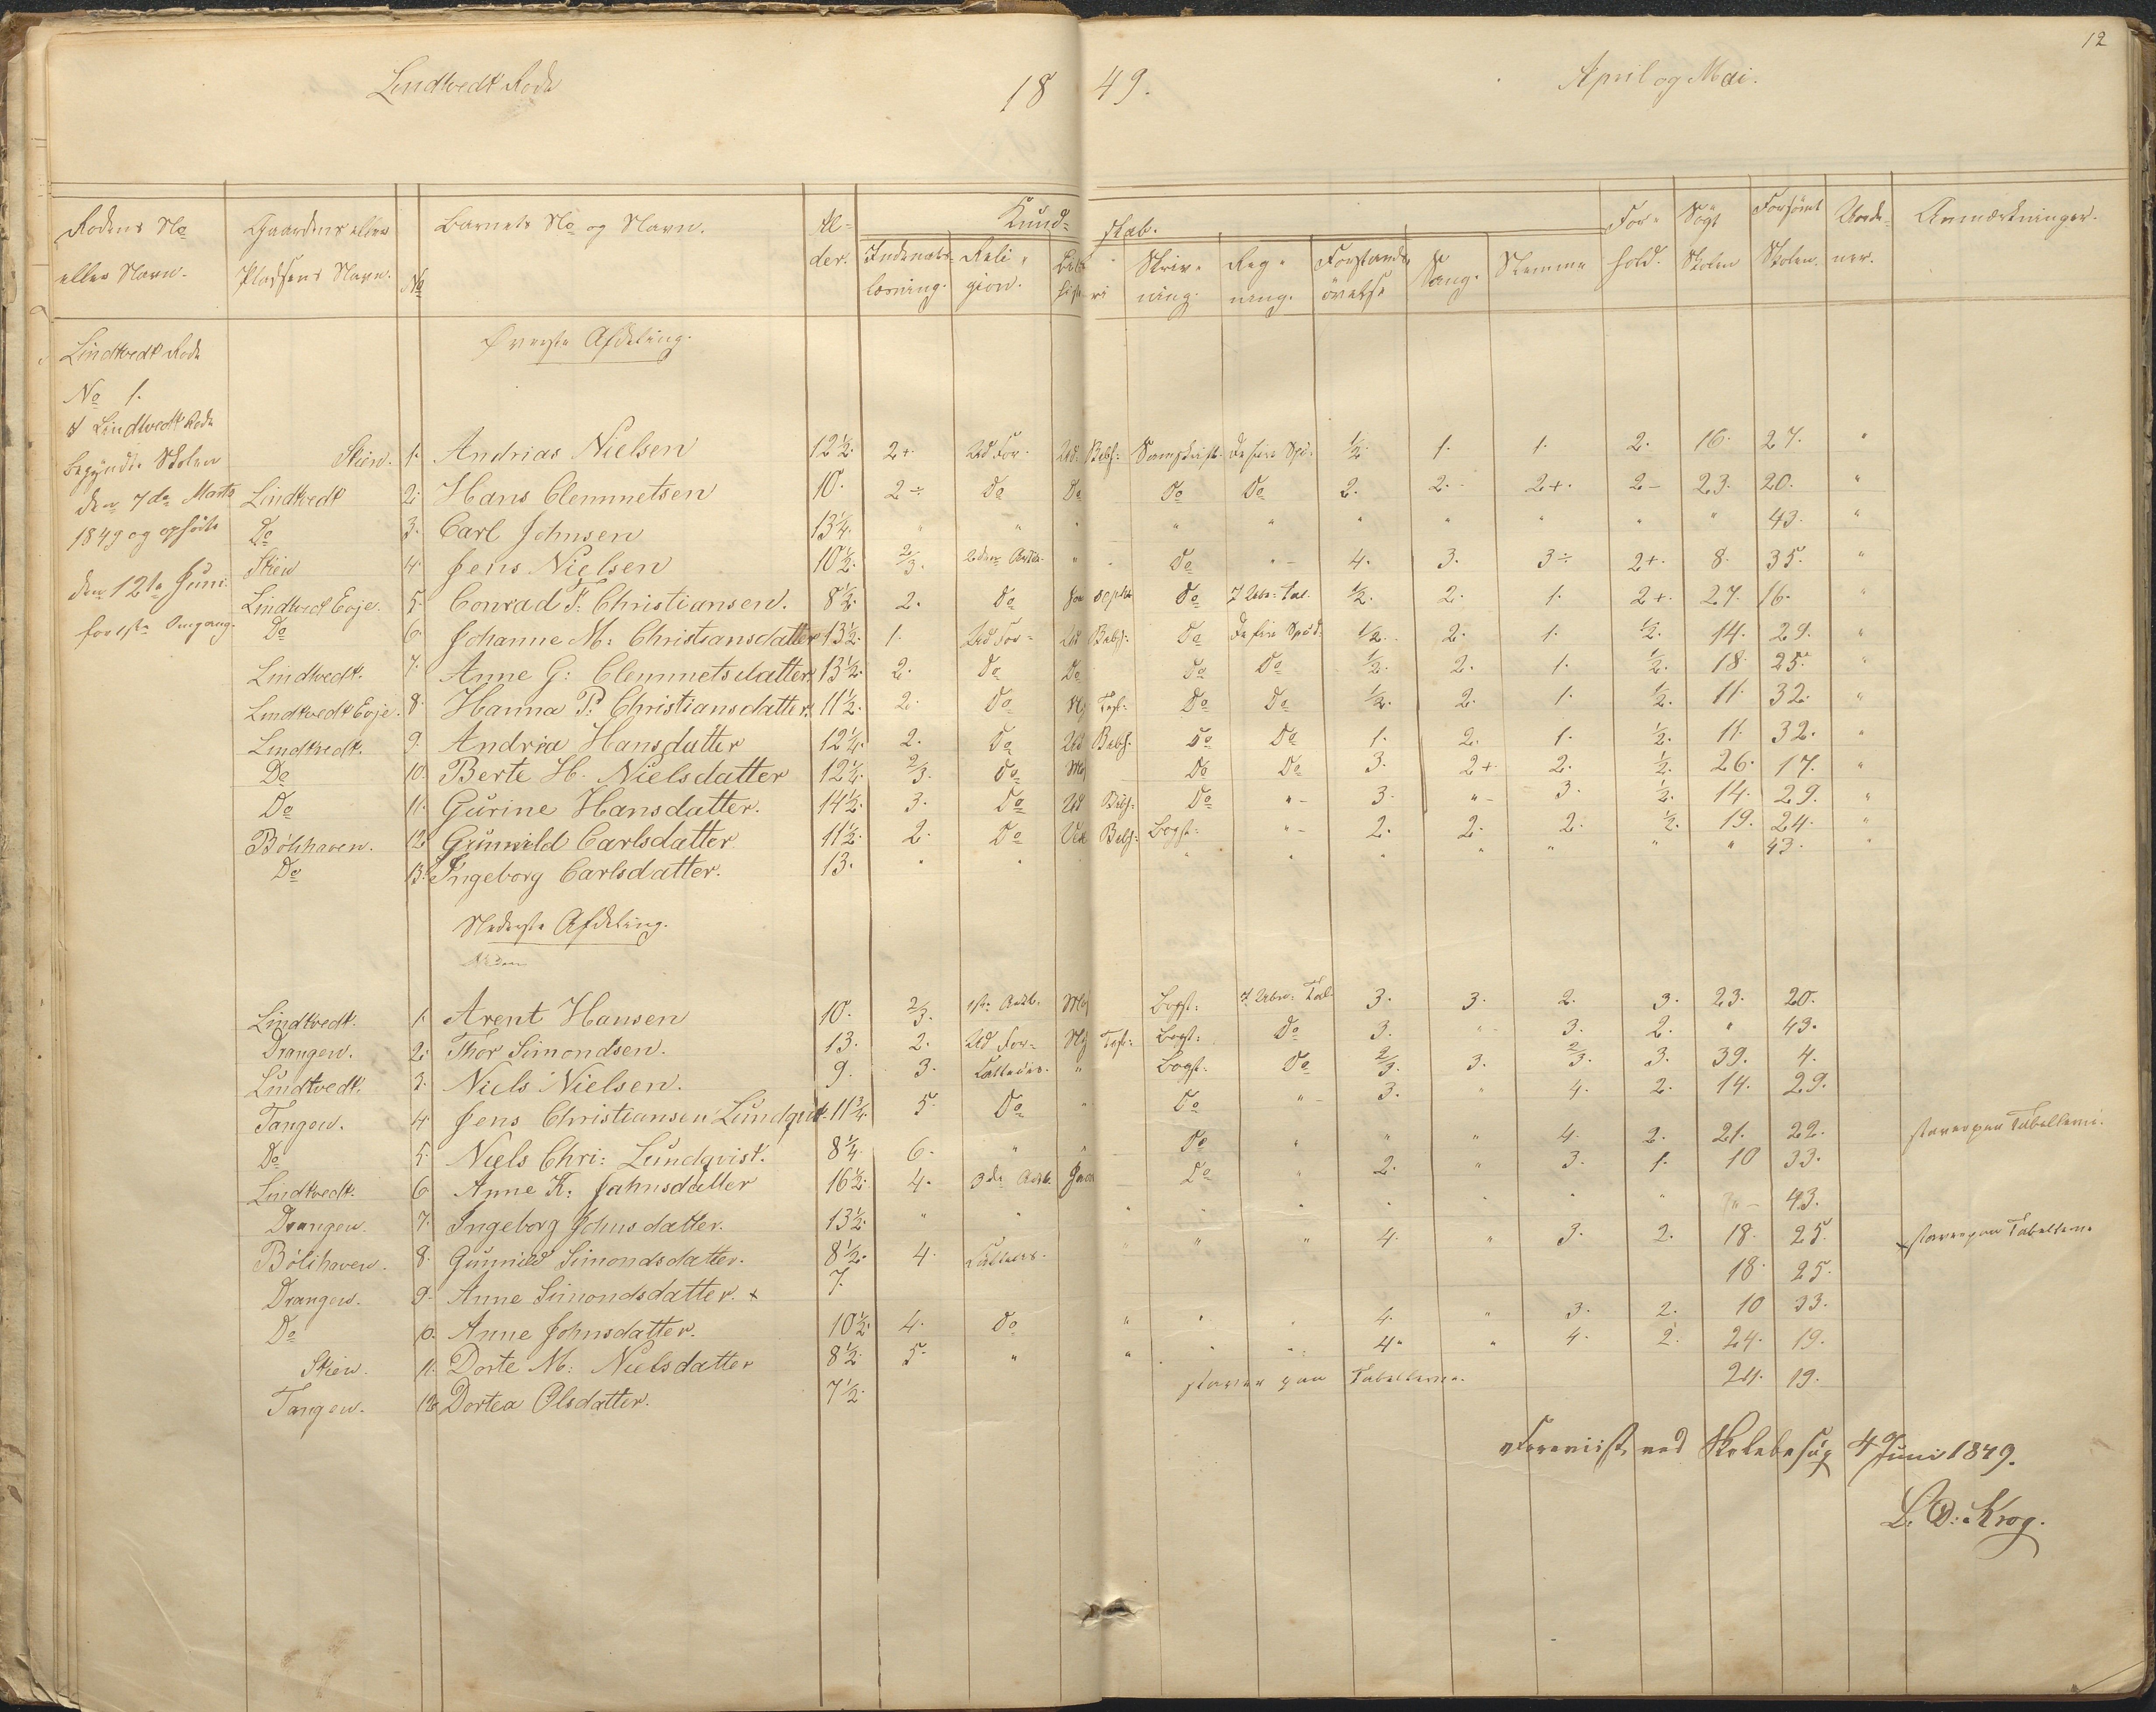 12
Lindtvedt Rode
18 49.
April og Mai.
Rodens No eller Navn. Gaardens eller Pladsens Navn. No Barnets No og Navn. Al- der. Kund- skab. For- hold. Søgt Skolen Forsømt Skolen. Anmærkninger.
Indenads- læsning. Reli- gion. Skriv- ning. Reg- ning. Forstands- øvelse Sang. Stemme
Øverste Afdeling.
Lindtvedt Rode
No 1.
I Lindtvedt Rode
begyndte Skolen
den 7de Marts
1849 og ophörte
den 12te Juni
for 1ste Omgang.
Skien. 1. Andrias Nielsen 12½. 2+. Ud For- Ud Bibh: Samskrift. De fire Spe: ½. 1. 1. 2. 16. 27. "
Lindtvedt 2. Hans Clemmetsen 10. 2÷ Do Do Do Do 2. 2. 2+. 2- 23. 20. "
Do 3. Carl Johnsen 13¼. " " " " " " " " " " 43. "
Skien 4. Jens Nielsen 10½. 2/3. 2den Do " 4. 3. 3÷ 2+. 8. 35. "
Lindtvedt Eoje. 5. Conrad F. Christiansen. 8½. 2. Do Do 7 Ube: Tal. ½. 2. 1. 2+. 27. 16. "
Do 6. Johanne M: Christiansdatter 13½. 1. Ud For- Ud Bibh: Do De fire Spe: ½. 2. 1. ½. 14. 29. "
Lindtvedt. 7. Anne G: Clemmetsdatter. 13½. 2. Do Do Do Do ½. 2. 1. ½. 18. 25. "
Lindtvedt Eoje. 8. Hanna P. Christiansdatter. 11½. 2. Do Do Do ½. 2. 1. ½. 11. 32. "
Lindtvedt. 9. Andria Hansdatter 12¼. 2. Do Ud Bibh: Do Do 1. 2. 1. ½. 11. 32. "
Do 10. Berte H. Nielsdatter 12¼. 2/3. Do Do Do 3. 2+ 2. ½. 26. 17. "
Do 11. Gurine Hansdatter. 14½. 3. Do Ud Bibh: Do " 3. " 3. ½. 14. 29. "
Bölihaven. 12. Gunnild Carlsdatter 11½. 2. Do Ud Bibh: Bogst: " 2. 2. 2. ½. 19. 24. "
Do 13. Ingeborg Carlsdatter. 13. " " " " " " " " " 43. "
Nederste Afdeling.
Lindtvedt. 1. Arent Hansen 10. 2/3. 1ste Bogst: 7 Ube: Tal. 3. 3. 2. 3. 23. 20.
Drangen. 2. Thor Simondsen. 13. 2. Ud For- Bogst: Do 3. " 3. 2. " 43.
Lindtvedt. 3. Niels Nielsen. 9. 3. " Bogst: Do 2/3. 3. 2/3. 3. 39. 4.
Tangen. 4. Jens Christiansen Lundqvist. 11¾. 5. Do " Do " 3. " 4. 2. 14. 29.
Do 5. Niels Chri: Lundqvist. 8¼ 6. " " Do " " " 4. 2. 21. 22. staver paa Tabellerne.
Lindtvedt. 6 Anne K: Jahnsdatter 16½. 4. 3die Do " 2. " 3. 1. 10 33.
Drangen. 7. Ingeborg Johnsdatter. 13½. " " " " " " " " " 43.
Bölihaven. 8. Gunnild Simondsdatter. 8½. 4. " " " 4. " 3. 2. 18. 25. staver paa Tabellerne
Drangen. 9. Anne Simondsdatter. x 7. 18. 25.
Do 10. Anne Johnsdatter. 10½. 4. Do " " " 4. " 3. 2. 10 33.
Skien. 11. Dorte M: Nielsdatter 8½. 5. " " " " 4. " 4. 2. 24. 19.
Tangen. 12. Dortea Olsdatter. 7½. staver paa Tabellerne. 24. 19.
Foreviist ved Skolebesög 4 Juni 1849.
L. D: Krog.